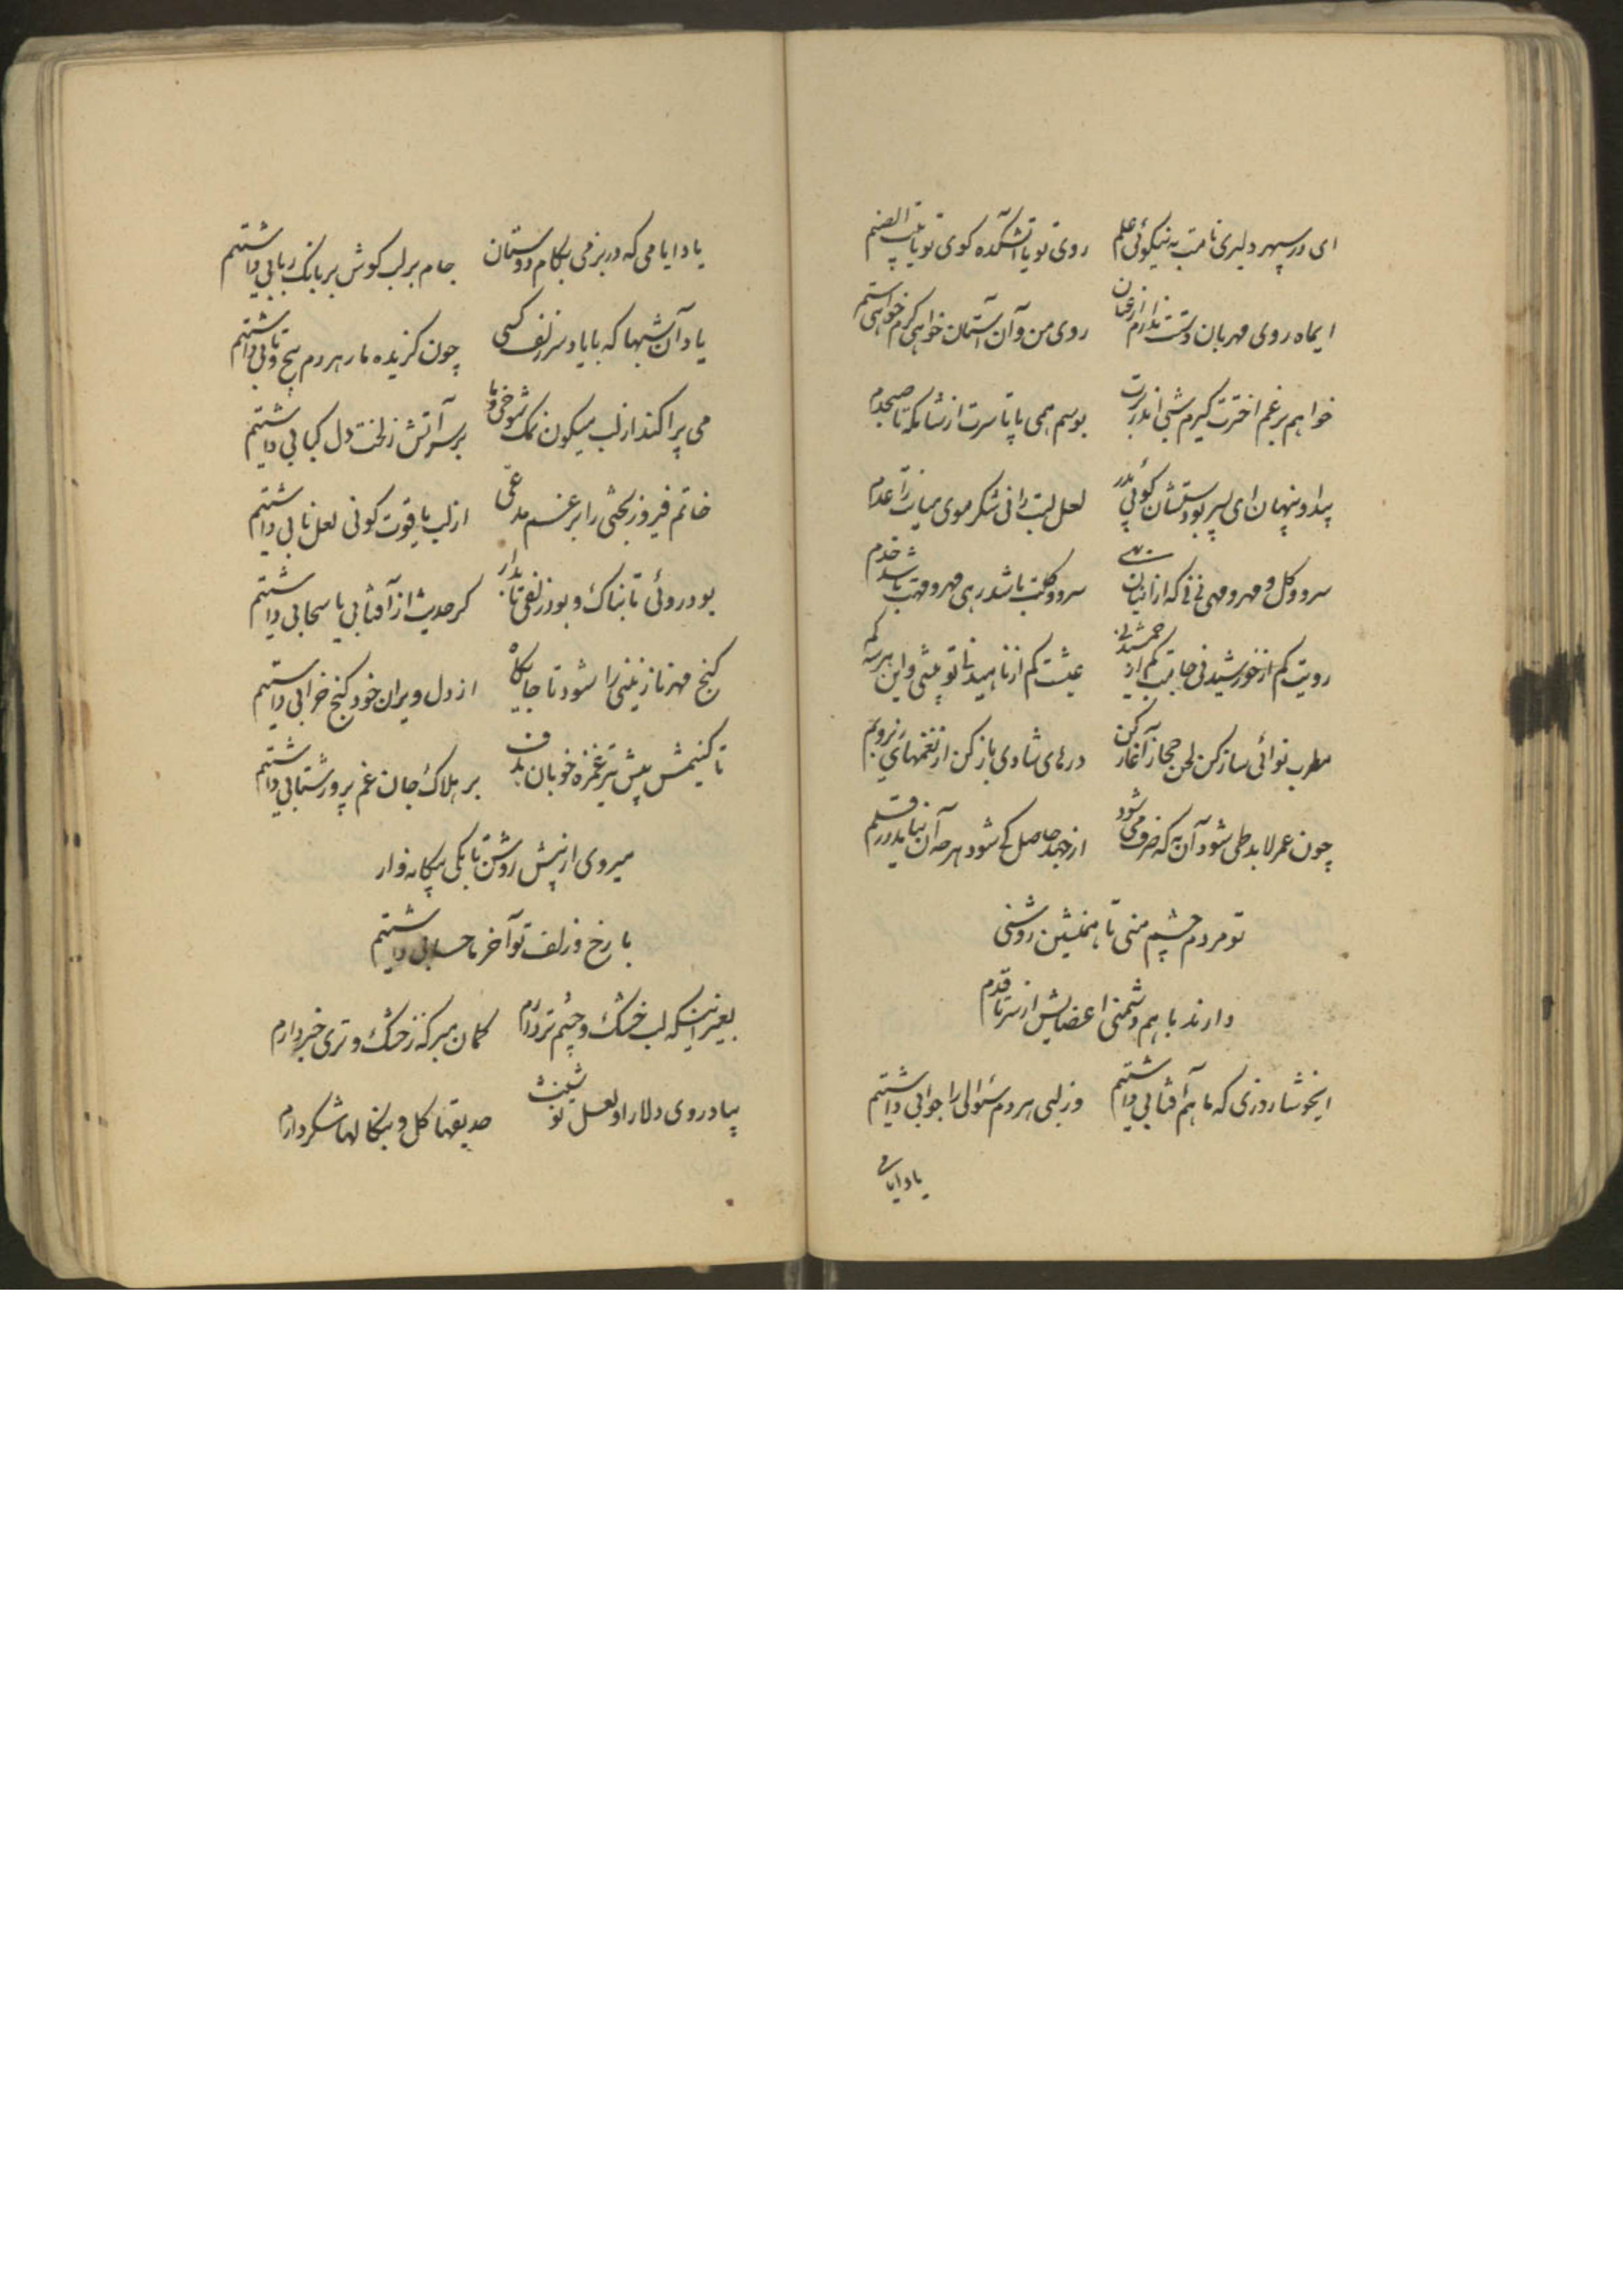 ای در سپهر دلبری نامت به نیکوئی علم روی تو یا آتشکده کوی تو یا بیت الصنم
ایماه روی مهربان دستت ندارم از عنان روی من و آن آستان خواهی کرم خواهی ستم
خواهم برغم اخترت گیرم شبی اندر برت بوسم همی پا تا سرت از شامگه تا صبحدم
پیدا و پنهان ای پسر بودستشان گوئی پدر لعل لبت را نی شکر موی میانت را عدم
سرو و گل و مهر و مهی نی نی که از ایشان بهی سرو و گلت باشد رهی مهر و مهت باشد خدم
رویت کم از خورشید نی جامت کم از جمشید نی عیشت کم از ناهید نی تو بیشی و این هر سه کم
مطرب نوائی ساز کن لحن حجاز آغاز کن درهای شادی باز کن از نغمهای زیر و بم
چون عمر لابد طی شود آن به که صرف می شود از جهد حاصل کی شود هر چه آن نیاید در قلم
تو مردم چشم منی تا همنشین روشنی
دارند با هم دشمنی اعضایش از سر تا قدم
ایخوشا روزی که ما هم آفتابی داشتیم وز لبی هر دم سئوالی را جوابی داشتیم
یاد ایامی
یاد ایامی که در بزمی بکام دوستان جام بر لب گوش بر بانگ ربابی داشتیم
یاد آن شبها که با یاد سر زلف کسی چون گزیده مار هر دم پیچ و تابی داشتیم
می پراکند از لب میگون نمک شوخی و ما بر سر آتش ز لخت دل کبابی داشتیم
خاتم فیروزبختی را برغم مدعی از لب یاقوت گونی لعل نابی داشتیم
بود روئی تابناک و بود زلفی تابدار گر حدیث از آفتابی یا سحابی داشتیم
گنج مهر نازنینی را شود تا جایگاه از دل ویران خود کنج خرابی داشتیم
تا کنیمش پیش تیر غمزه خوبان هدف بر هلاک جان غم پرور شتابی داشتیم
میروی از پیش روشن تا بکی بیگانه وار
با رخ و زلف تو آخر ما حسابی داشتیم
بغیر اینکه لب خشک و چشم تر دارم گمان مبر که ز خشک و تری خبر دارم
بیاد روی دلارا و لعل نوشینت حدیقها گل و بنگالها شکر دارم